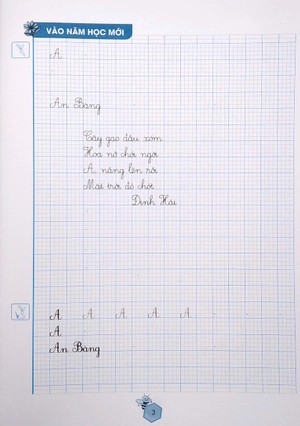 VÀO NĂM HỌC MỚI
A
An Bang
Cây gạo đầu xóm
Hoa nở chói ngời
A, nắng lên rồi
Mặt trời đỏ chót
Định Hải
A A A A A
A
An Bang
3